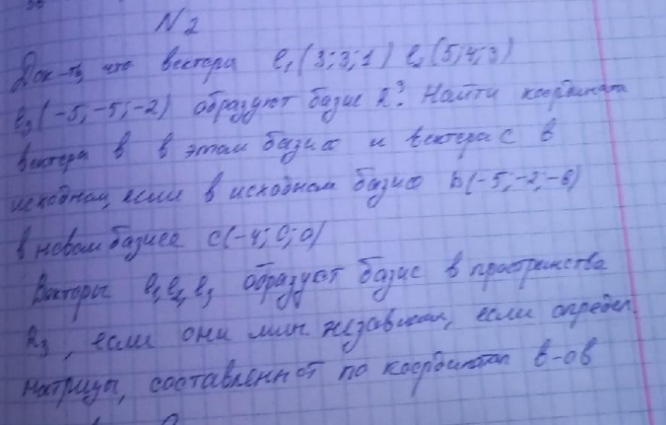 N 2
Док-ть, что вектора e₁(3;3;1) e₂(5;4;3)
e₃(-5;-5;-2) образуют базис R³. Найти координаты
вектора в в этом базисе и вектора с в
исходном, если в исходном базисе b(-5;-2;-6)
в новом базисе c(-4;0;0)
Векторы e₁ e₂ e₃ образуют базис в пространства
R₃, если они лин независим, если определ.
матрицы, составленной по координатам в-ов